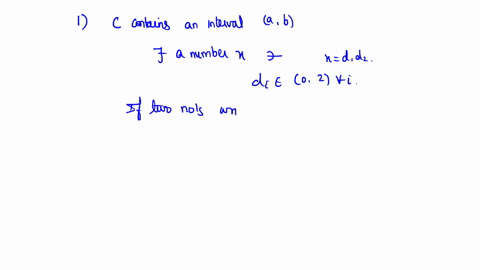 1) C contains an interval (a, b)
∃ a number x ∋ x = d₁d₂.
dᵢ ∈ (0, 2) ∀ i.
If two no's an